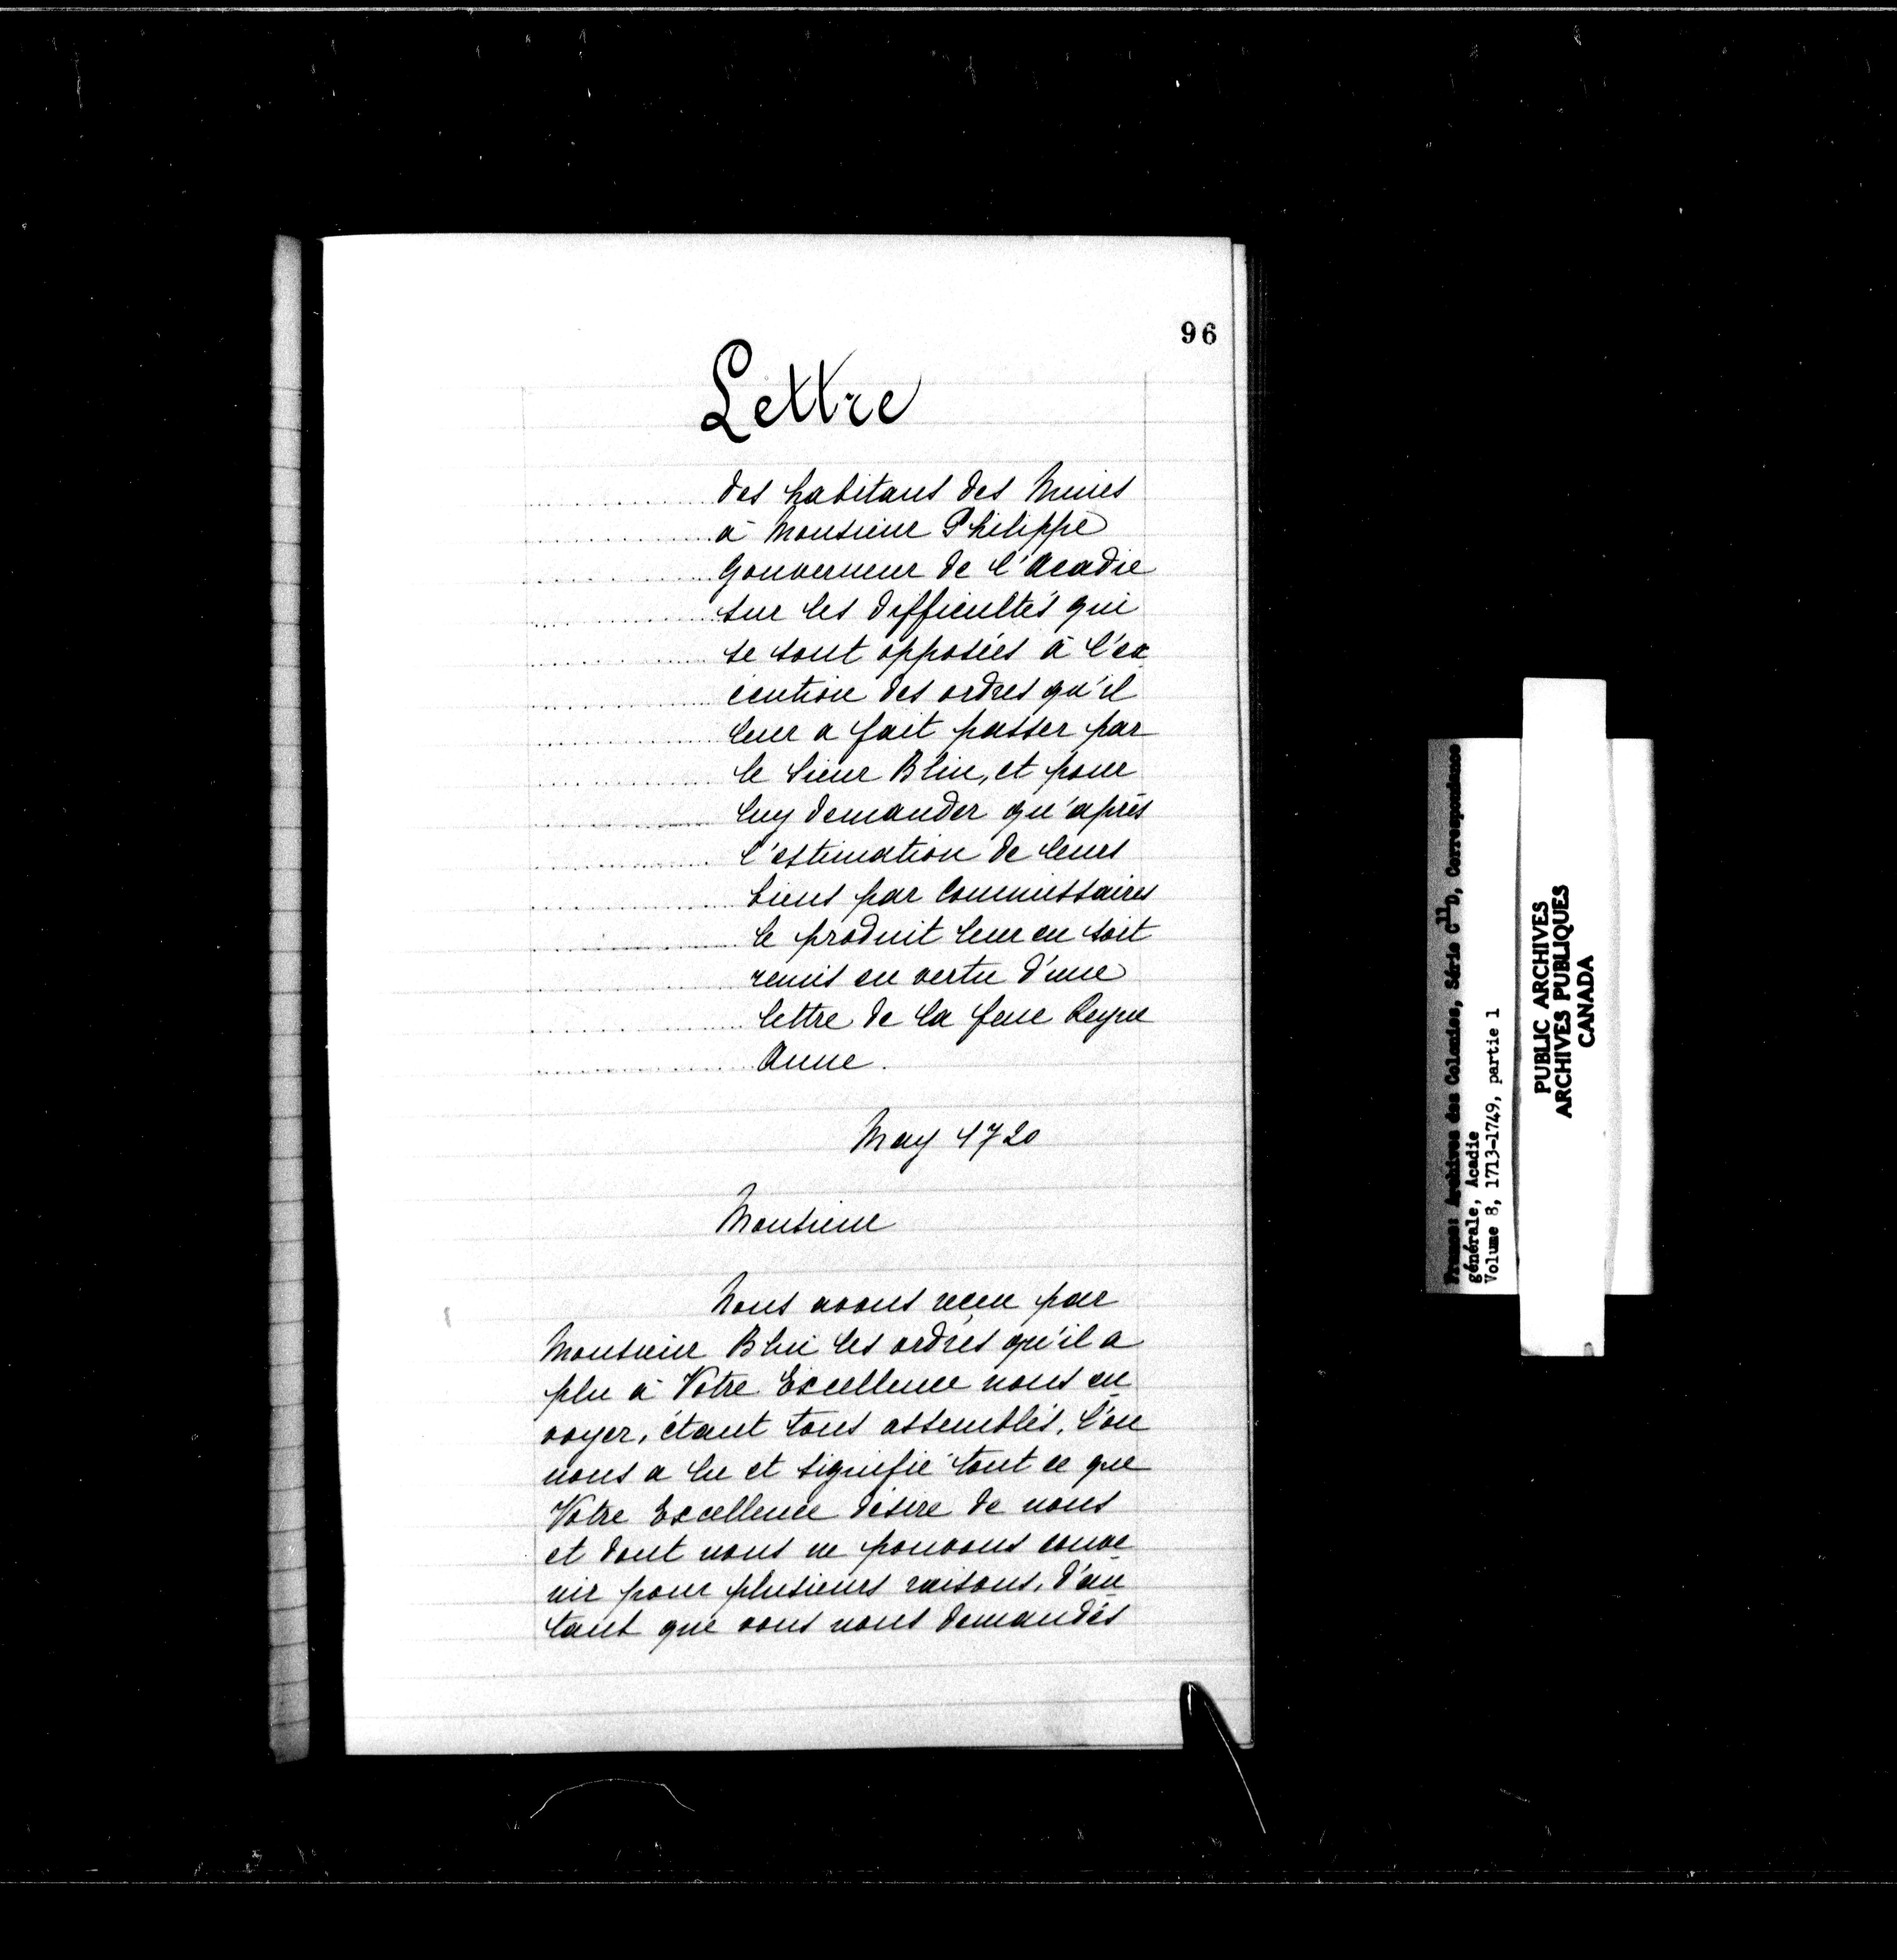 96
Lettre
des habitans des Mines
à Monsieur Philippe
Gouverneur de l'Acadie
sur les difficultés qui
se sont opposées à l'ex
écution des ordres qu'il
leur a fait passer par
le Sieur Blin, et pour
luy demander qu'après
l'estimation de leurs
biens par Commissaires
le produit leur en soit
remis en vertu d'une
lettre de la feue Reyne
Anne.
May 1720
Monsieur
Nous avons reçu par
Monsieur Blin les ordres qu'il a
plu à Votre Excellence nous en
voyer, étant tous assemblés, l'on
nous a lu et signifié tout ce que
Votre Excellence désire de nous
et dont nous ne pouvons conve
nir pour plusieurs raisons, d'au
tant que vous nous demandés
France: Archives des Colonies, Série C11D, Correspondance
générale, Acadie
Volume 8, 1713-1749, partie 1
PUBLIC ARCHIVES
ARCHIVES PUBLIQUES
CANADA